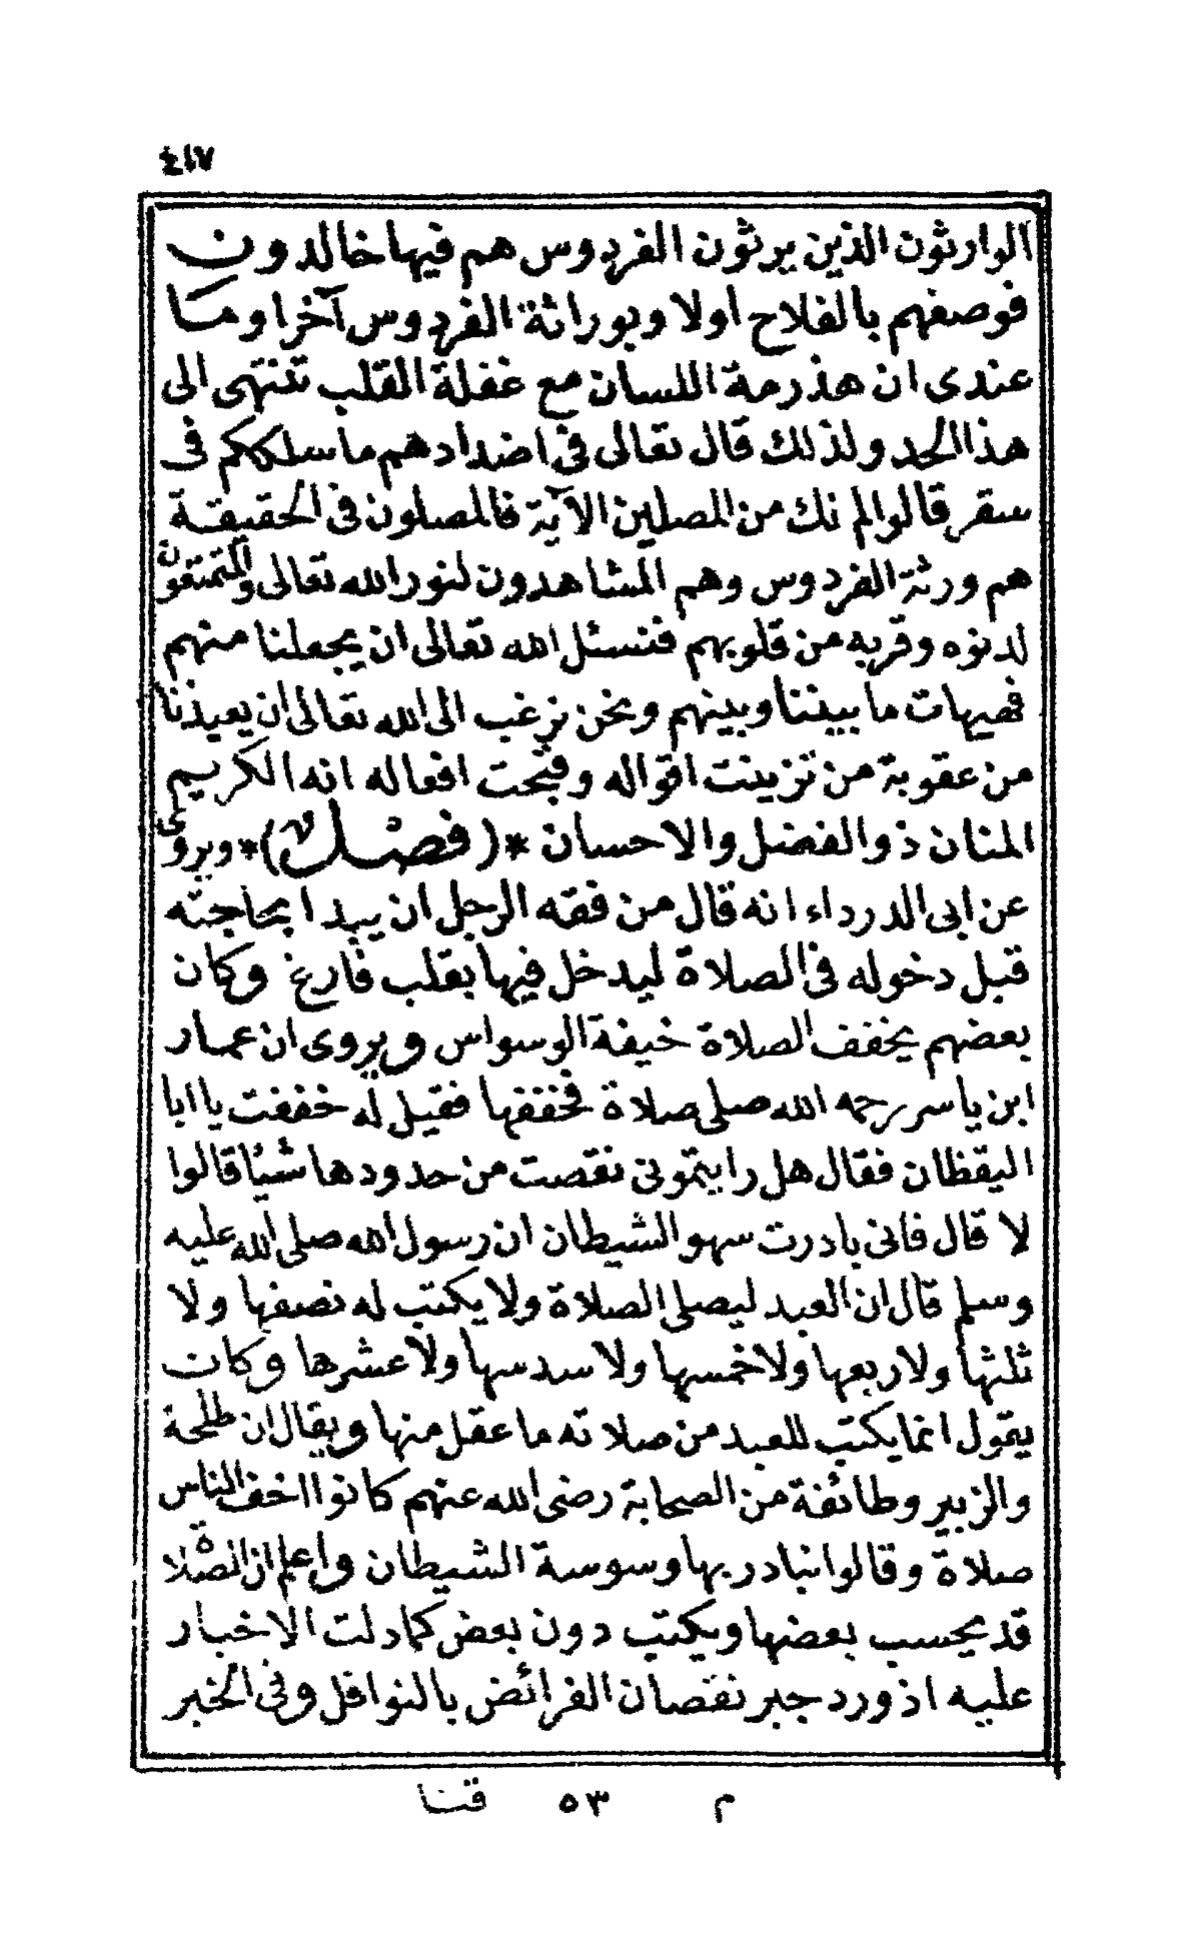 ٤١٧
الوارثون الذين يرثون الفردوس هم فيها خالدون
فوصفهم بالفلاح اولا وبوراثة الفردوس آخرا وما
عندى ان هذرمة اللسان مع غفلة القلب تنتهى الى
هذا الحد ولذلك قال تعالى فى اضدادهم ما سلككم فى
سقر قالوا لم نك من المصلين الآية فالمصلون فى الحقيقة
هم ورثة الفردوس وهم المشاهدون لنور الله تعالى والمتمتعون
لدنوه وقربه من قلوبهم فنسئل الله تعالى ان يجعلنا منهم
فهيهات ما بيننا وبينهم ونحن نرغب الى الله تعالى ان يعيذنا
من عقوبة من تزينت اقواله وقبحت افعاله انه الكريم
المنان ذو الفضل والاحسان *(فصل)* ويروى
عن ابى الدرداء انه قال من فقه الرجل ان يبدا بحاجته
قبل دخوله فى الصلاة ليدخل فيها بقلب فارغ وكان
بعضهم يخفف الصلاة خيفة الوسواس ويروى ان عمار
ابن ياسر رحمه الله صلى صلاة فخففها فقيل له خففت يا ابا
اليقظان فقال هل رايتمونى نقصت من حدودها شيئا قالوا
لا قال فانى بادرت سهو الشيطان ان رسول الله صلى الله عليه
وسلم قال ان العبد ليصلى الصلاة ولا يكتب له نصفها ولا
ثلثها ولا ربعها ولا خمسها ولا سدسها ولا عشرها وكان
يقول انما يكتب للعبد من صلاته ما عقل منها ويقال ان طلحة
والزبير وطائفة من الصحابة رضى الله عنهم كانوا اخف الناس
صلاة وقالوا نبادر بها وسوسة الشيطان واعلم ان الصلاة
قد يحسب بعضها ويكتب دون بعض كما دلت الاخبار
عليه اذ ورد جبر نقصان الفرائض بالنوافل وفى الخبر
م ٥٣ قنا